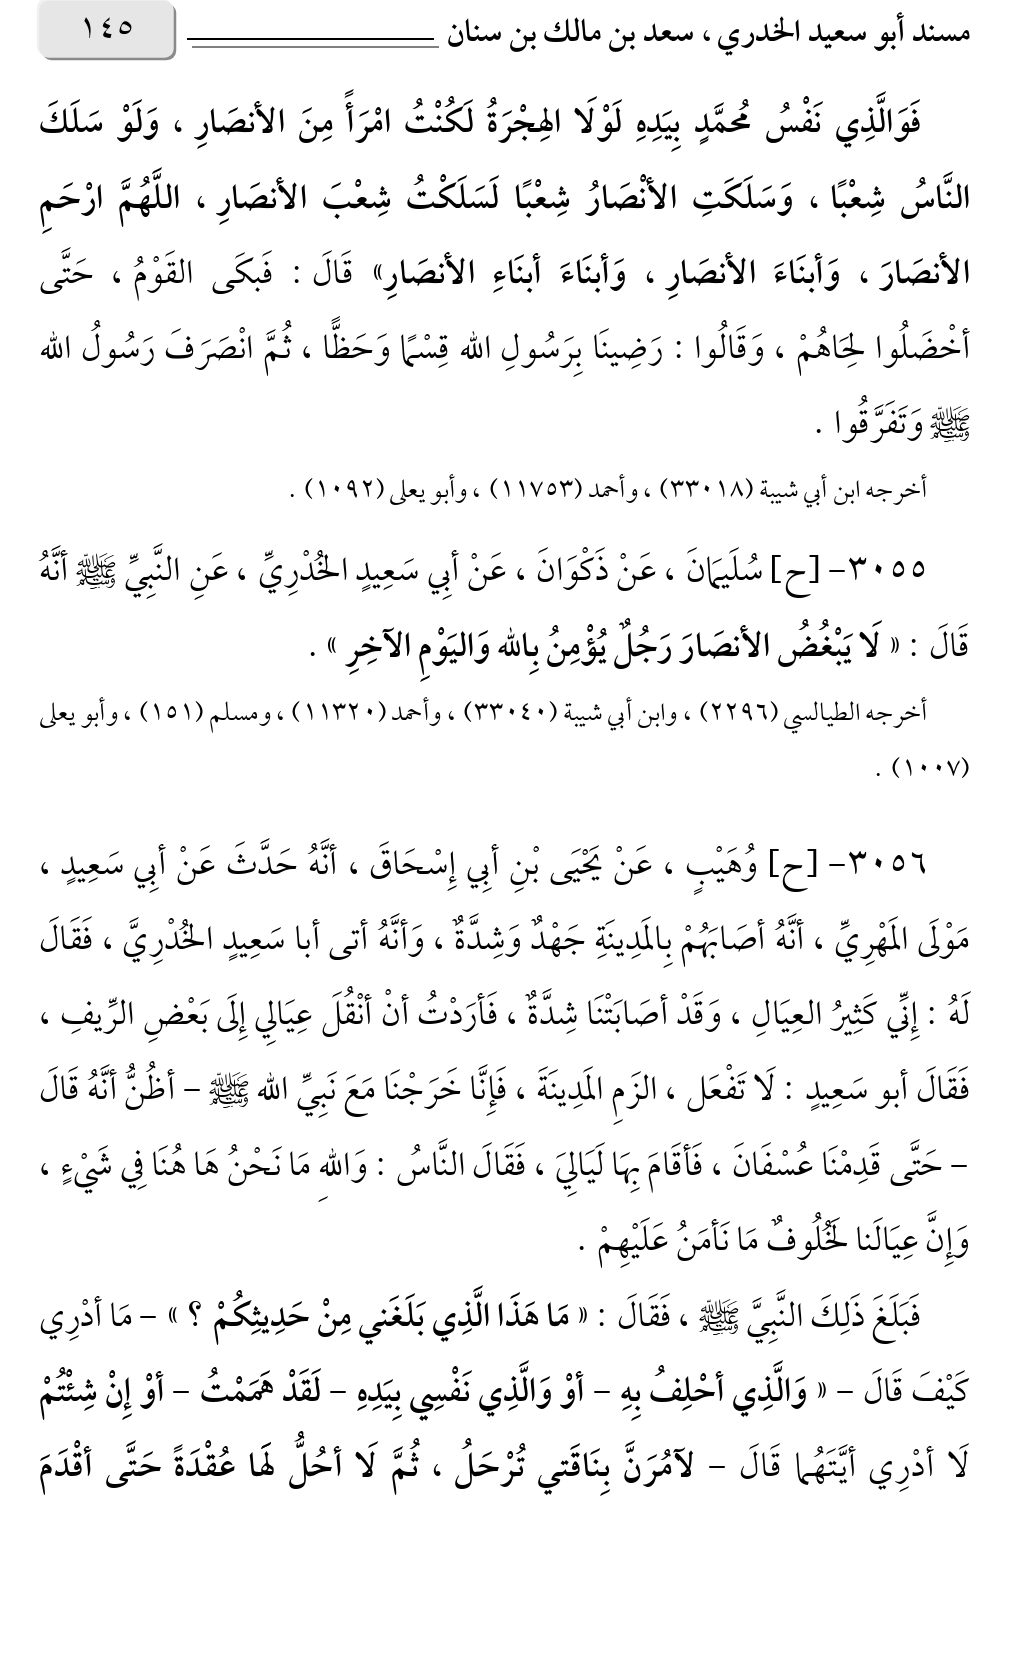 مسند أبو سعيد الخدري ، سعد بن مالك بن سنان ١٤٥
فَوَالَّذِي نَفْسُ مُحَمَّدٍ بِيَدِهِ لَوْلَا الهِجْرَةُ لَكُنْتُ امْرَأً مِنَ الأنصَارِ ، وَلَوْ سَلَكَ
النَّاسُ شِعْبًا ، وَسَلَكَتِ الأنْصَارُ شِعْبًا لَسَلَكْتُ شِعْبَ الأنصَارِ ، اللَّهُمَّ ارْحَمِ
الأنصَارَ ، وَأبنَاءَ الأنصَارِ ، وَأبنَاءَ أبنَاءِ الأنصَارِ» قَالَ : فَبكَى القَوْمُ ، حَتَّى
أخْضَلُوا لِحَاهُمْ ، وَقَالُوا : رَضِينَا بِرَسُولِ الله قِسْمًا وَحَظًّا ، ثُمَّ انْصَرَفَ رَسُولُ الله
ﷺ وَتَفَرَّقُوا .
أخرجه ابن أبي شيبة (٣٣٠١٨) ، وأحمد (١١٧٥٣) ، وأبو يعلى (١٠٩٢) .
٣٠٥٥- [ح] سُلَيمَانَ ، عَنْ ذَكْوَانَ ، عَنْ أبي سَعِيدٍ الخُدْرِيِّ ، عَنِ النَّبِيِّ ﷺ أنَّهُ
قَالَ : « لَا يَبْغُضُ الأنصَارَ رَجُلٌ يُؤْمِنُ بِالله وَاليَوْمِ الآخِرِ » .
أخرجه الطيالسي (٢٢٩٦) ، وابن أبي شيبة (٣٣٠٤٠) ، وأحمد (١١٣٢٠) ، ومسلم (١٥١) ، وأبو يعلى
(١٠٠٧) .
٣٠٥٦- [ح] وُهَيْبٍ ، عَنْ يَحْيَى بْنِ أبِي إِسْحَاقَ ، أنَّهُ حَدَّثَ عَنْ أبي سَعِيدٍ ،
مَوْلَى المَهْرِيِّ ، أنَّهُ أصَابَهُمْ بِالمَدِينَةِ جَهْدٌ وَشِدَّةٌ ، وَأنَّهُ أتى أبا سَعِيدٍ الخُدْرِيَّ ، فَقَالَ
لَهُ : إِنِّي كَثِيرُ العِيَالِ ، وَقَدْ أصَابَتْنَا شِدَّةٌ ، فَأرَدْتُ أنْ أنْقُلَ عِيَالِي إِلَى بَعْضِ الرِّيفِ ،
فَقَالَ أبو سَعِيدٍ : لَا تَفْعَل ، الزَمِ المَدِينَةَ ، فَإِنَّا خَرَجْنَا مَعَ نَبِيِّ الله ﷺ – أظُنُّ أنَّهُ قَالَ
– حَتَّى قَدِمْنَا عُسْفَانَ ، فَأقَامَ بِهَا لَيَالِيَ ، فَقَالَ النَّاسُ : وَاللهِ مَا نَحْنُ هَا هُنَا فِي شَيْءٍ ،
وَإِنَّ عِيَالَنا لَخُلُوفٌ مَا نَأمَنُ عَلَيْهِمْ .
فَبَلَغَ ذَلِكَ النَّبِيَّ ﷺ ، فَقَالَ : « مَا هَذَا الَّذِي بَلَغَني مِنْ حَدِيثِكُمْ ؟ » – مَا أدْرِي
كَيْفَ قَالَ – « وَالَّذِي أحْلِفُ بِهِ – أوْ وَالَّذِي نَفْسِي بِيَدِهِ – لَقَدْ هَمَمْتُ – أوْ إِنْ شِئْتُمْ
لَا أدْرِي أيَّتَهُما قَالَ – لآمُرَنَّ بِنَاقَتي تُرْحَلُ ، ثُمَّ لَا أحُلُّ لهَا عُقْدَةً حَتَّى أقْدَمَ